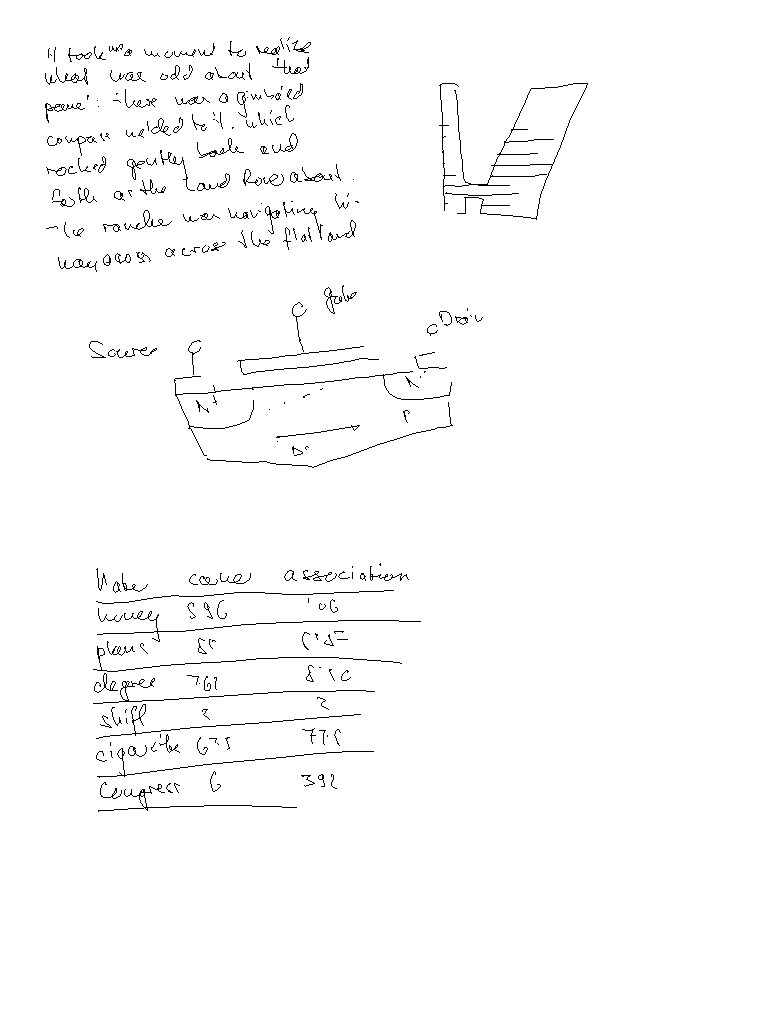 It took me a moment to realize
what was odd about that
panel: there was a gimbaled
compass welded to it, which
rocked gently back and
forth as the Land Rover about.
The rancher was navigating his
way across across the flatland
gate
Source
Drain
N+
N+
P
Name career association
honey 596 106
plans 85
degree 762
shift 2 2
cigarette 635 775
Congress 6 392